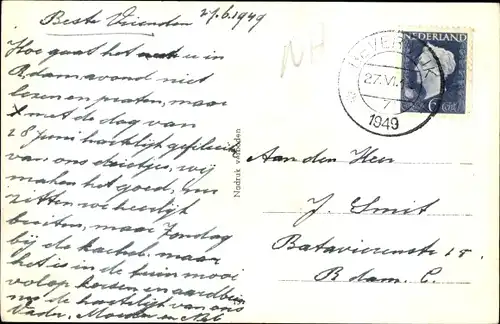 Beste Vrienden 27.6.1949
Hoe gaat het met u in
R.dam, avond niet
lezen en praten, maar
X met de dag van
28 Juni hartelijk gefelici
van ons drietjes, wij
maken het goed, nu
zitten we heerlijk
buiten, maar Zondag
bij de kachel. maar
het is in de tuin mooi
volop kersen en aardbeien
de hartelijk van ons
Vader, Moeder en
NH
Nadruk verboden
NEDERLAND
6 ct
BEVERWIJK
27.VI.
7
1949
Aan den Heer
J. Smit
Batavierenstr 15
R.dam. C.